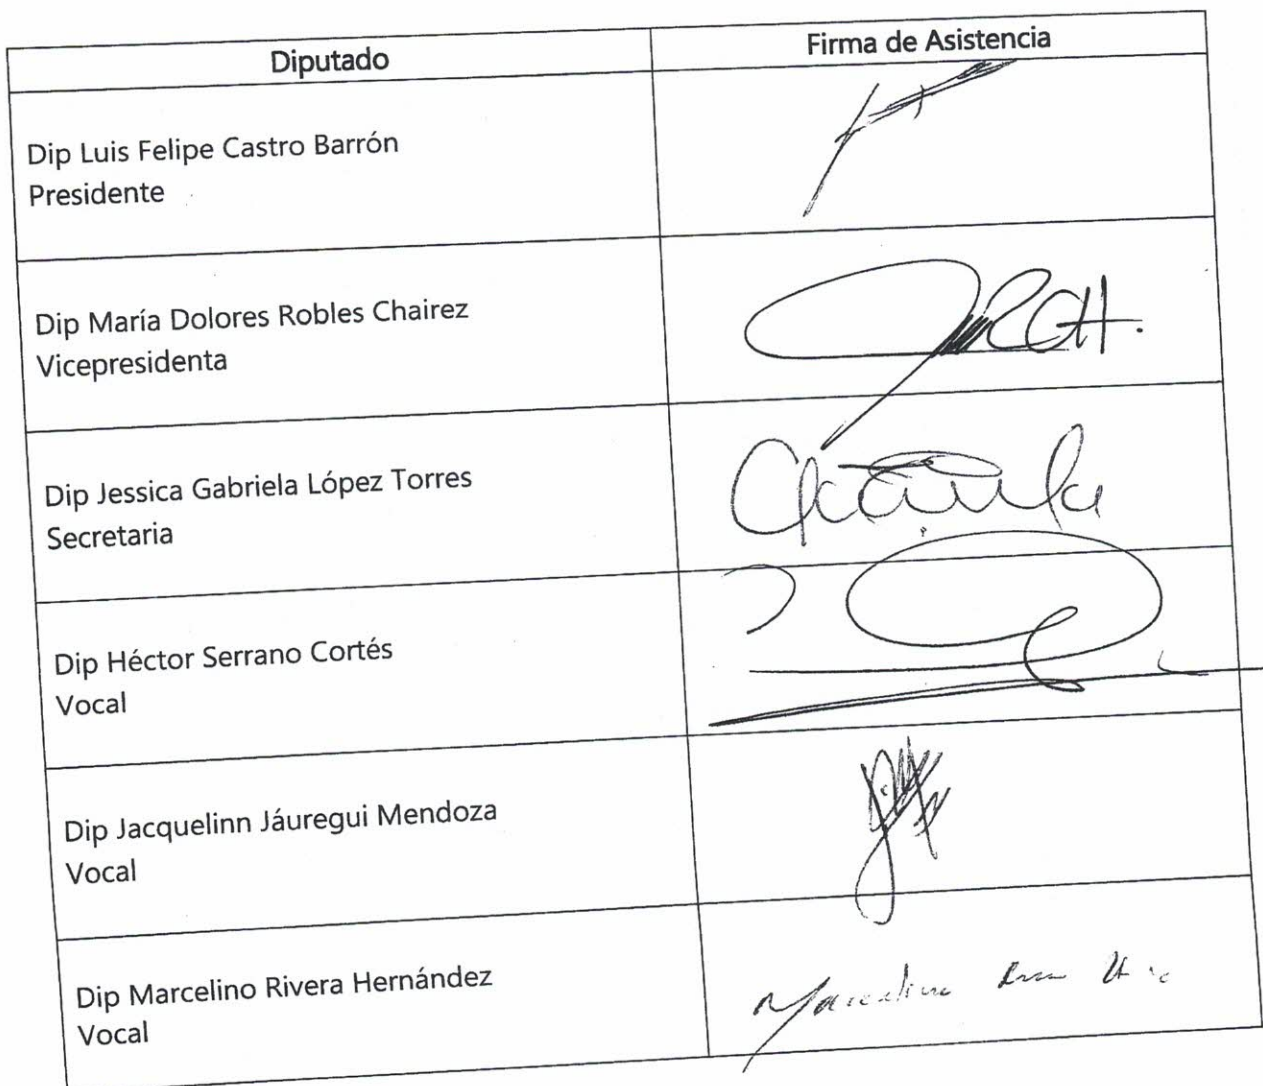 Diputado
Firma de Asistencia
Dip Luis Felipe Castro Barrón
Presidente
Dip María Dolores Robles Chairez
Vicepresidenta
RCH.
Dip Jessica Gabriela López Torres
Secretaria
Dip Héctor Serrano Cortés
Vocal
Dip Jacquelinn Jáuregui Mendoza
Vocal
Dip Marcelino Rivera Hernández
Vocal
Marcelino